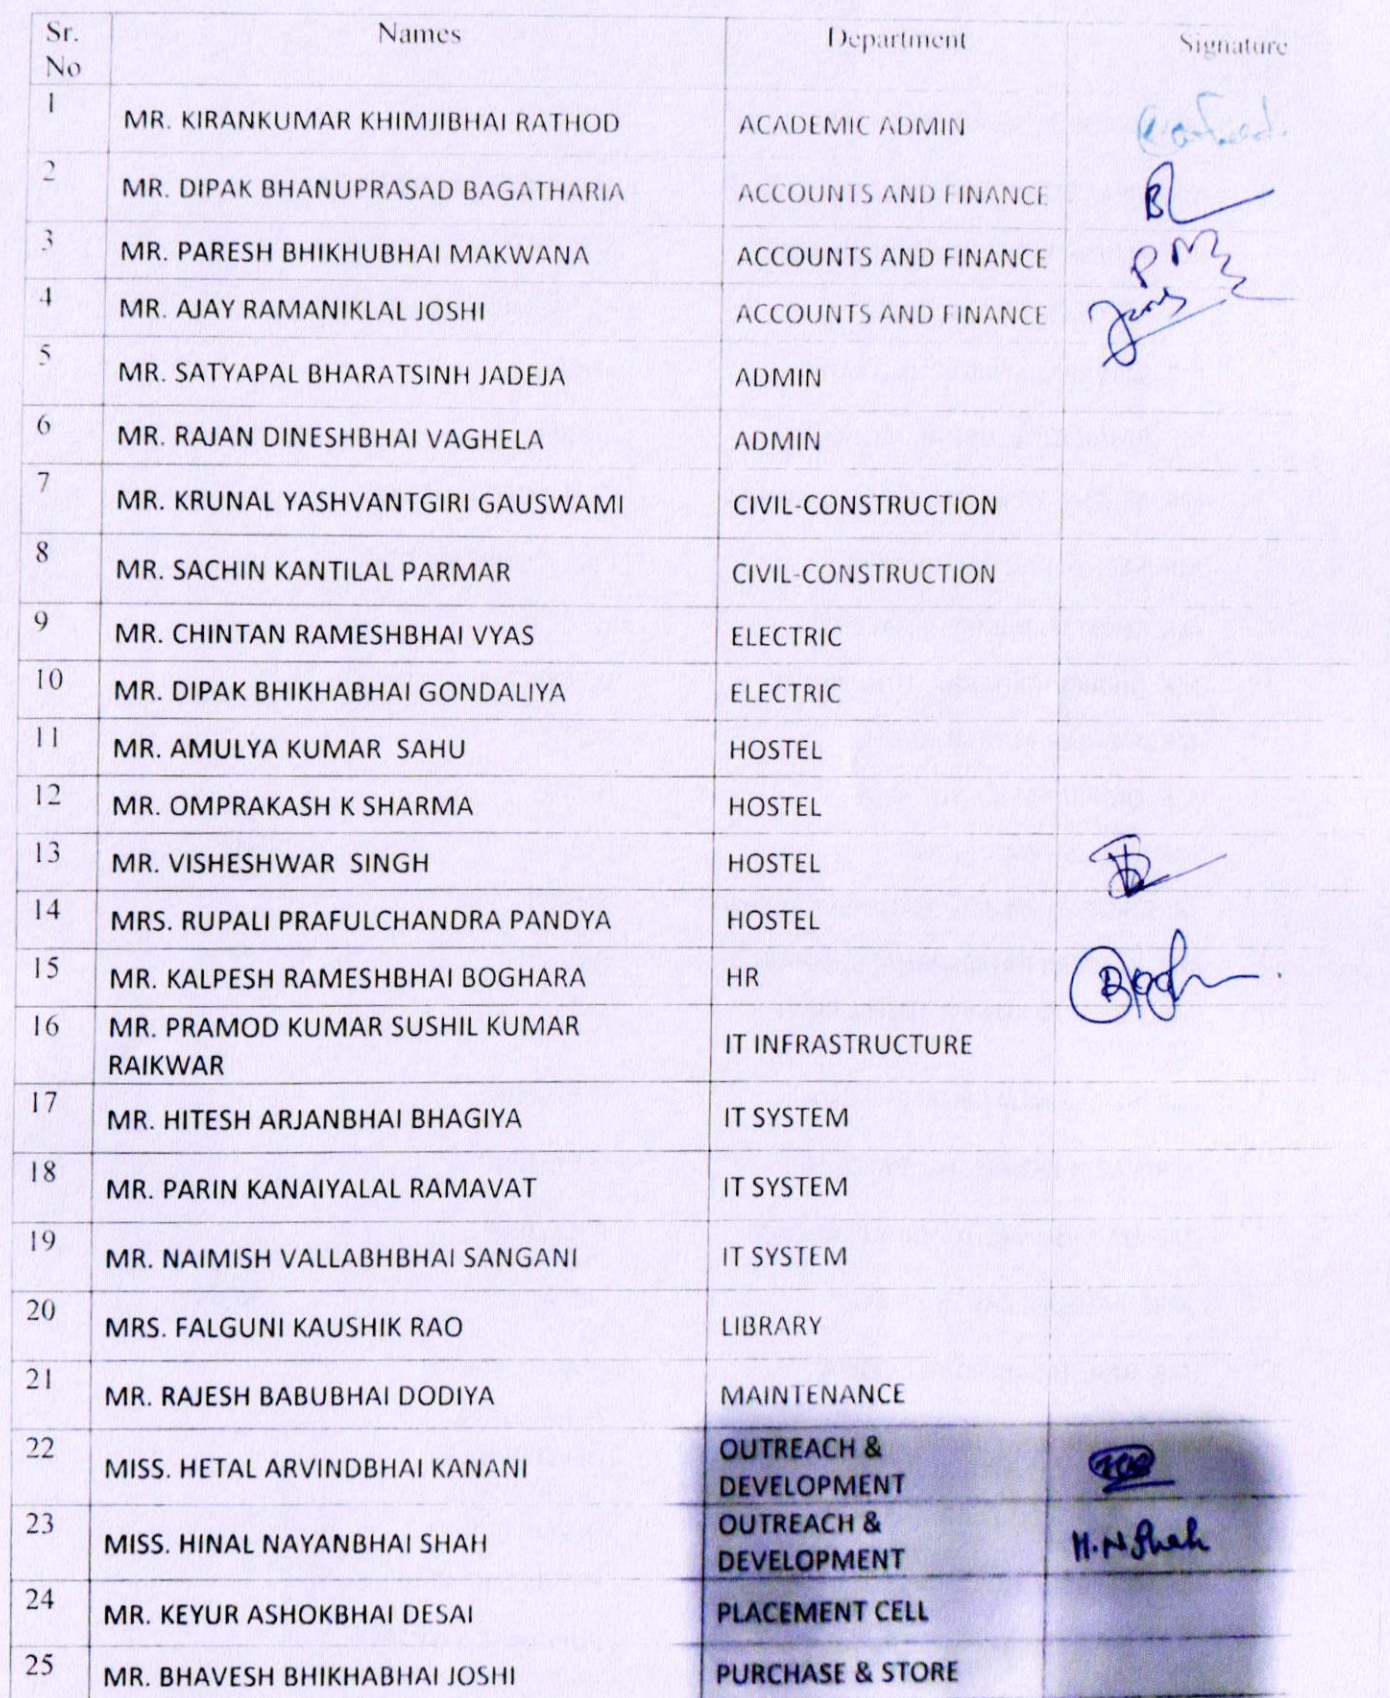 Sr. No Names Department Signature
1 MR. KIRANKUMAR KHIMJIBHAI RATHOD ACADEMIC ADMIN
2 MR. DIPAK BHANUPRASAD BAGATHARIA ACCOUNTS AND FINANCE
3 MR. PARESH BHIKHUBHAI MAKWANA ACCOUNTS AND FINANCE
4 MR. AJAY RAMANIKLAL JOSHI ACCOUNTS AND FINANCE
5 MR. SATYAPAL BHARATSINH JADEJA ADMIN
6 MR. RAJAN DINESHBHAI VAGHELA ADMIN
7 MR. KRUNAL YASHVANTGIRI GAUSWAMI CIVIL-CONSTRUCTION
8 MR. SACHIN KANTILAL PARMAR CIVIL-CONSTRUCTION
9 MR. CHINTAN RAMESHBHAI VYAS ELECTRIC
10 MR. DIPAK BHIKHABHAI GONDALIYA ELECTRIC
11 MR. AMULYA KUMAR SAHU HOSTEL
12 MR. OMPRAKASH K SHARMA HOSTEL
13 MR. VISHESHWAR SINGH HOSTEL
14 MRS. RUPALI PRAFULCHANDRA PANDYA HOSTEL
15 MR. KALPESH RAMESHBHAI BOGHARA HR
16 MR. PRAMOD KUMAR SUSHIL KUMAR RAIKWAR IT INFRASTRUCTURE
17 MR. HITESH ARJANBHAI BHAGIYA IT SYSTEM
18 MR. PARIN KANAIYALAL RAMAVAT IT SYSTEM
19 MR. NAIMISH VALLABHBHAI SANGANI IT SYSTEM
20 MRS. FALGUNI KAUSHIK RAO LIBRARY
21 MR. RAJESH BABUBHAI DODIYA MAINTENANCE
22 MISS. HETAL ARVINDBHAI KANANI OUTREACH & DEVELOPMENT
23 MISS. HINAL NAYANBHAI SHAH OUTREACH & DEVELOPMENT H.N Shah
24 MR. KEYUR ASHOKBHAI DESAI PLACEMENT CELL
25 MR. BHAVESH BHIKHABHAI JOSHI PURCHASE & STORE